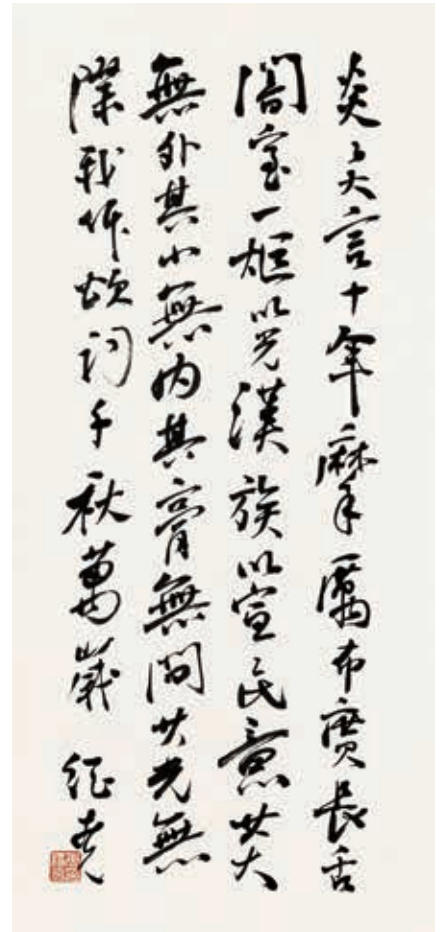 炎々大言十年摩厲布廣長舌
闇室一炬以光漢族以宣民意其大
無外其小無内其膏無間其光無
際我作頌詞千秋萬歲